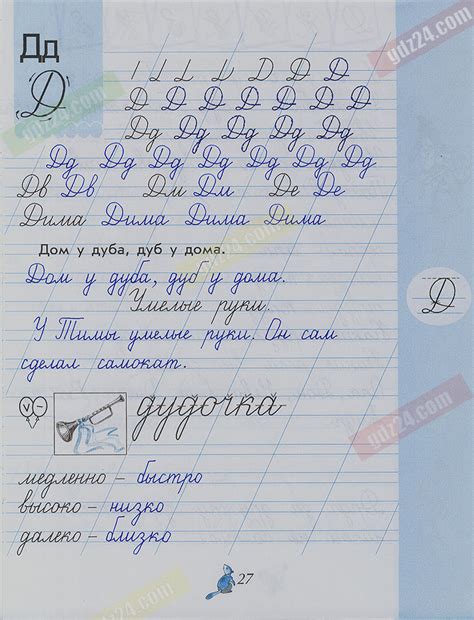 Дд
Д
Д Д Д Д Д Д Д
Дд Дд Дд Дд Дд
Дд Дд Дд Дд Дд Дд Дд
Дв Дв Дм Дм Де Де
Дима Дима Дима Дима
Дом у дуба, дуб у дома.
Дом у дуба, дуб у дома.
Д
Умелые руки.
У Тимы умелые руки. Он сам
сделал самокат.
дудочка
медленно – быстро
высоко – низко
далеко – близко
27